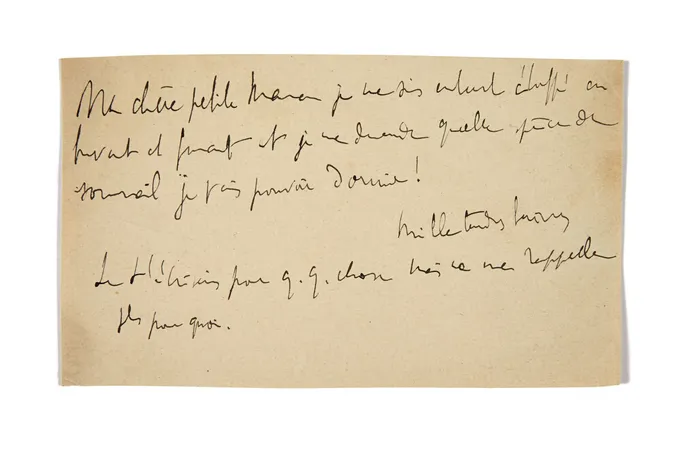 Ma chère petite Maman je me suis étouffé en
buvant et fumant et je me demande quelle espèce de
sommeil je vais pouvoir dormir!
Mille tendres baisers
Je t'écrivais pour q.q. chose mais ne me rappelle
plus pourquoi.